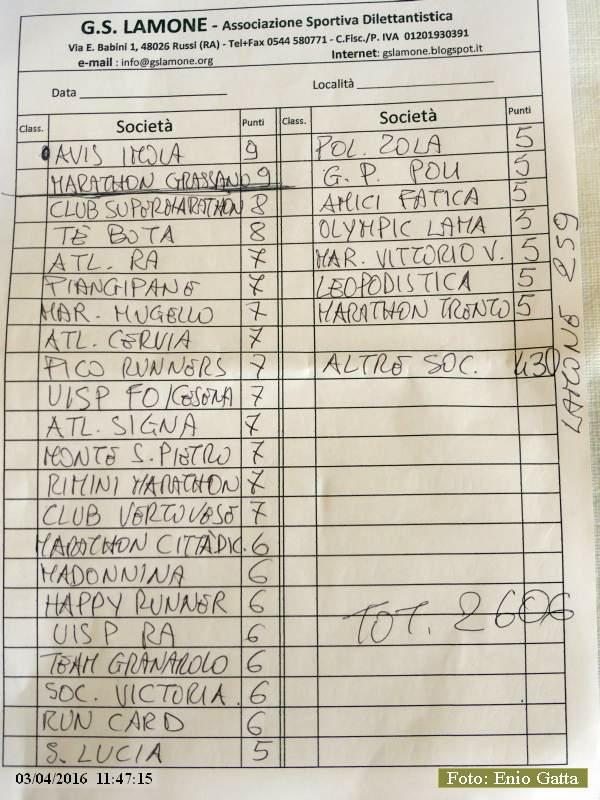 G.S. LAMONE - Associazione Sportiva Dilettantistica
Via E. Babini 1, 48026 Russi (RA) - Tel+Fax 0544 580771 - C.Fisc./P. IVA 01201930391
e-mail : info@gslamone.org Internet: gslamone.blogspot.it
Data Località
Class. Società Punti
AVIS IMOLA 9
MARATHON GRASSANO 9
CLUB SUPERMARATHON 8
TE BOTA 8
ATL. RA 7
PIANGIPANE 7
MAR. MUGELLO 7
ATL. CERVIA 7
PICO RUNNERS 7
UISP FO/CESENA 7
ATL. SIGNA 7
MONTE S. PIETRO 7
RIMINI MARATHON 7
CLUB VERTOVESE 7
MARATHON CITTÀDIC. 6
MADONNINA 6
HAPPY RUNNER 6
UISP RA 6
TEAM GRANAROLO 6
SOC. VICTORIA 6
RUN CARD 6
S. LUCIA 5
Class. Società Punti
POL. ZOLA 5
G. P. POLI 5
AMICI FATICA 5
OLYMPIC LAMA 5
MAR. VITTORIO V. 5
LEOPODISTICA 5
MARATHON TRENTO 5
ALTRE SOC. 430
TOT. 2606
LAMONE 259
03/04/2016 11:47:15
Foto: Enio Gatta